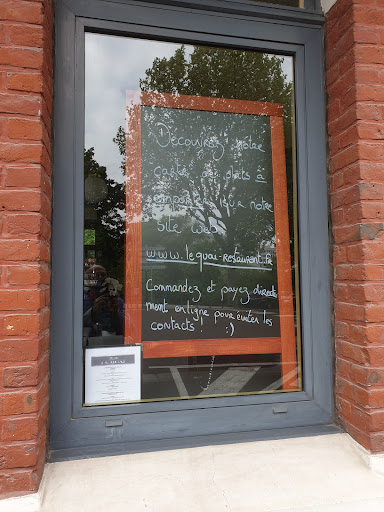 Découvrez notre
carte de plats à
emporter sur notre
site web
www.lequai-restaurant.fr
Commandez et payez directe
ment en ligne pour éviter les
contacts ! :)